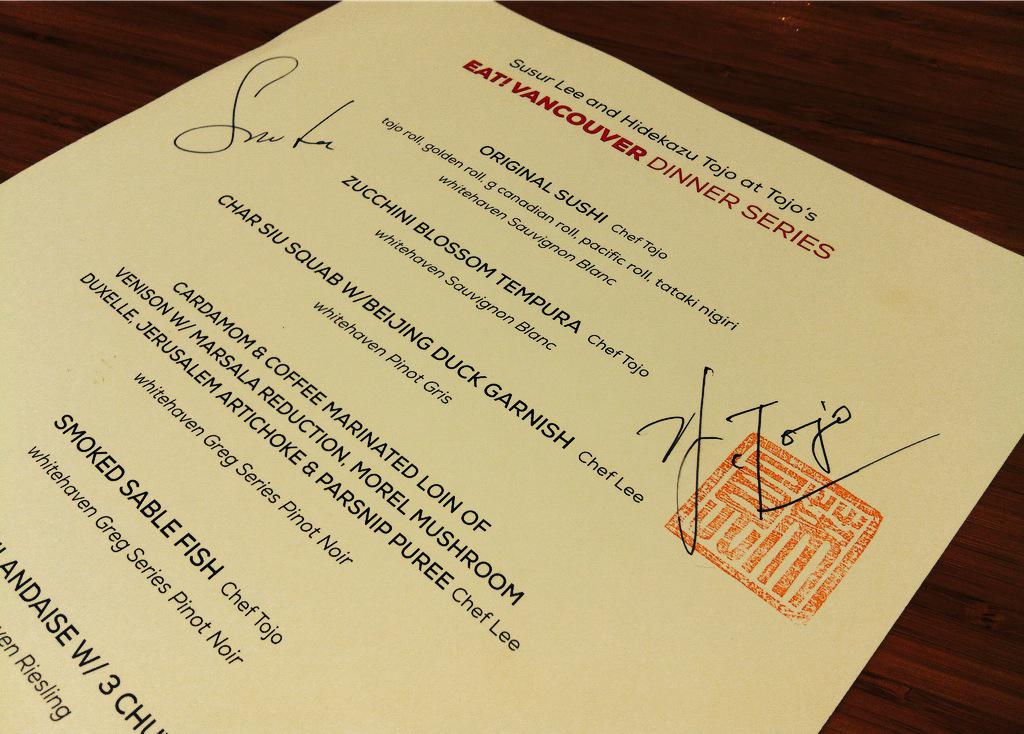 Susur Lee and Hidekazu Tojo at Tojo's
EAT! VANCOUVER DINNER SERIES
ORIGINAL SUSHI Chef Tojo
tojo roll, golden roll, g canadian roll, pacific roll, tataki nigiri
whitehaven Sauvignon Blanc
ZUCCHINI BLOSSOM TEMPURA Chef Tojo
whitehaven Sauvignon Blanc
CHAR SIU SQUAB W/BEIJING DUCK GARNISH Chef Lee
whitehaven Pinot Gris
CARDAMOM & COFFEE MARINATED LOIN OF
VENISON W/ MARSALA REDUCTION, MOREL MUSHROOM
DUXELLE, JERUSALEM ARTICHOKE & PARSNIP PUREE Chef Lee
whitehaven Greg Series Pinot Noir
SMOKED SABLE FISH Chef Tojo
whitehaven Greg Series Pinot Noir
LANDAISE W/ 3 CHU
ven Riesling
H. Tojo